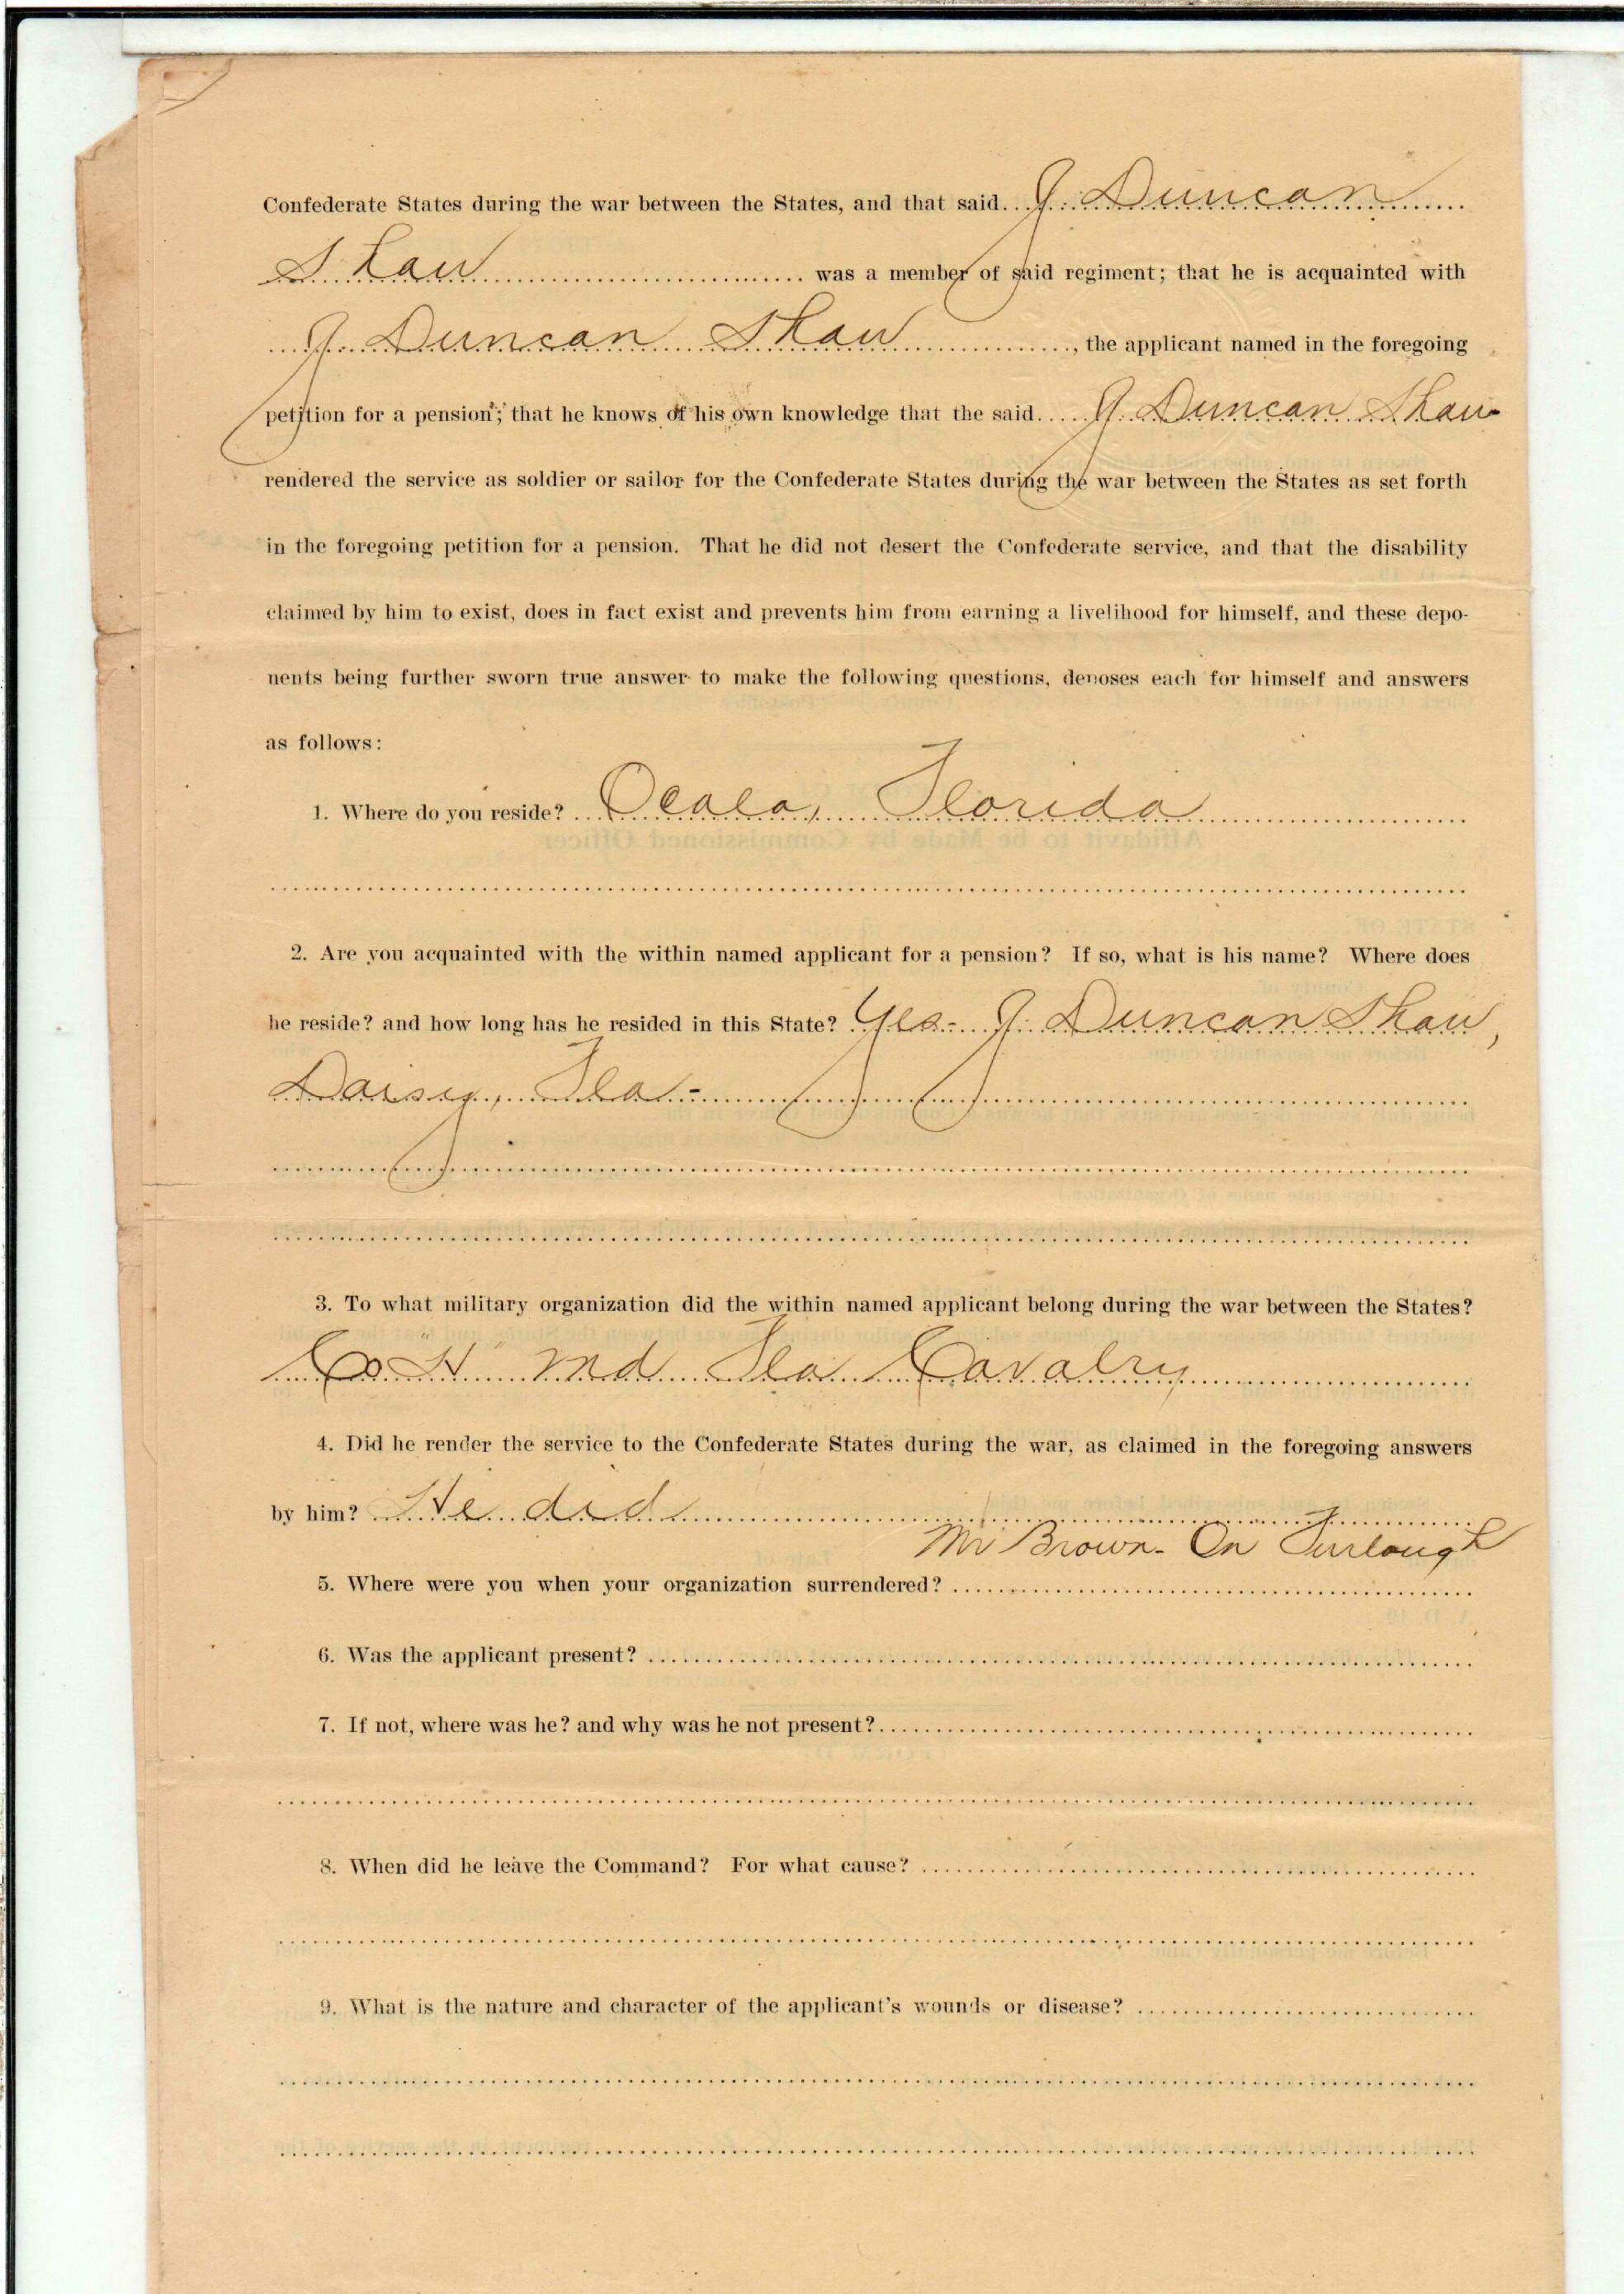 Confederate States during the war between the States, and that said J. Duncan
Shaw was a member of said regiment; that he is acquainted with
J. Duncan Shaw, the applicant named in the foregoing
petition for a pension; that he knows of his own knowledge that the said J. Duncan Shaw
rendered the service as soldier or sailor for the Confederate States during the war between the States as set forth
in the foregoing petition for a pension. That he did not desert the Confederate service, and that the disability
claimed by him to exist, does in fact exist and prevents him from earning a livelihood for himself, and these depo-
nents being further sworn true answer to make the following questions, deposes each for himself and answers
as follows:
1. Where do you reside? Ocala, Florida
2. Are you acquainted with the within named applicant for a pension? If so, what is his name? Where does
he reside? and how long has he resided in this State? Yes- J. Duncan Shaw,
Daisy, Fla-
3. To what military organization did the within named applicant belong during the war between the States?
Co "H" 2nd Fla Cavalry
4. Did he render the service to the Confederate States during the war, as claimed in the foregoing answers
by him? He did
Mr Brown- On Furlough
5. Where were you when your organization surrendered?
6. Was the applicant present?
7. If not, where was he? and why was he not present?
8. When did he leave the Command? For what cause?
9. What is the nature and character of the applicant's wounds or disease?